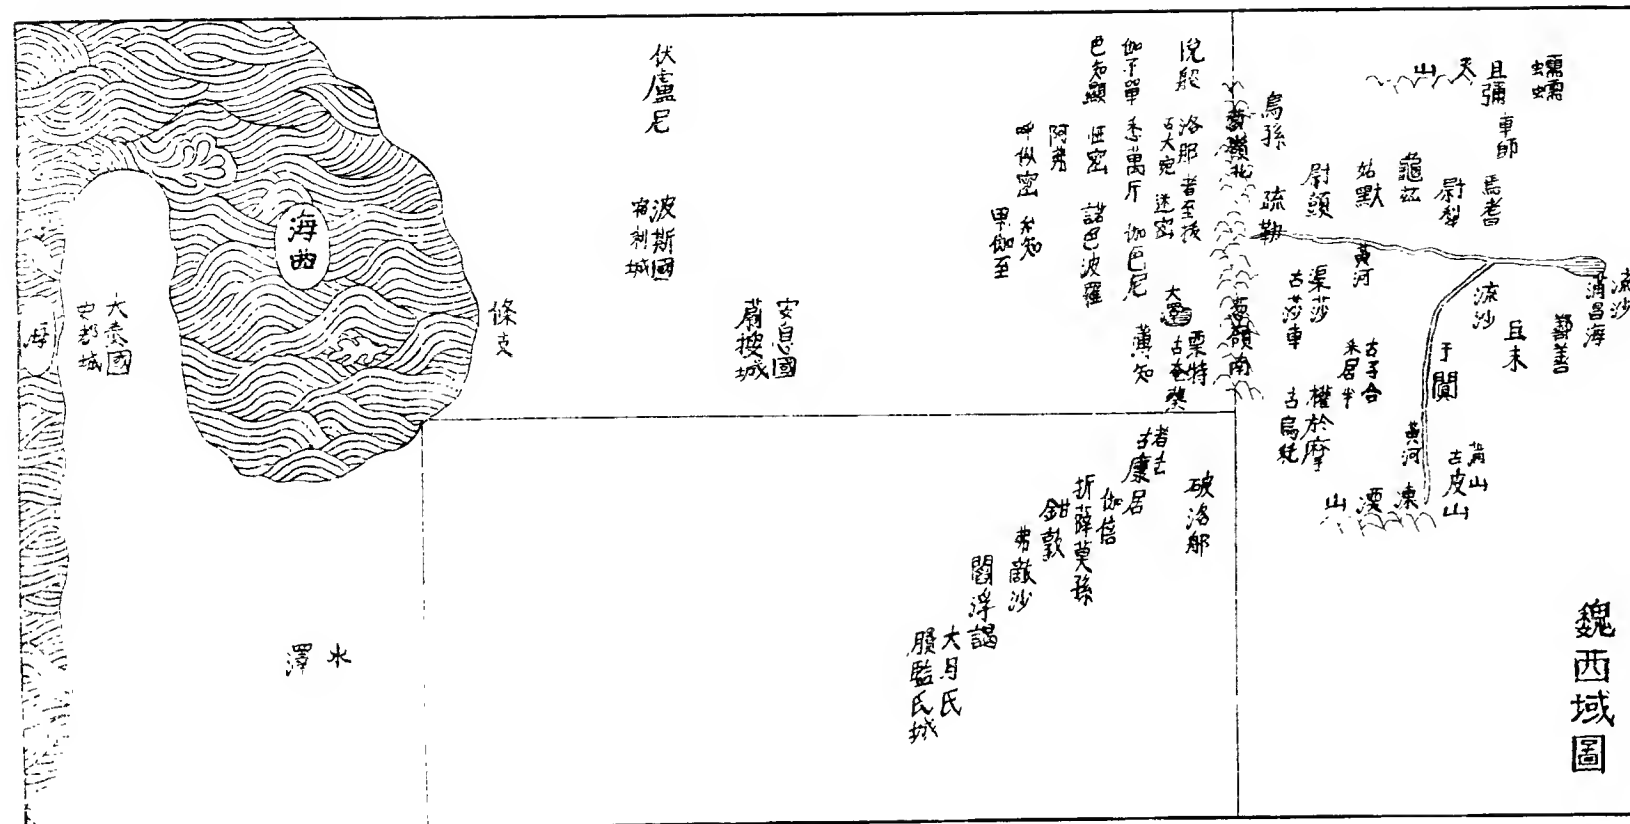 魏西域圖
蠕蠕
且彌
天山
車師
焉耆
尉犁
龜茲
姑默
尉頭
烏孫
疏勒
黃河
流沙
蒲昌海
鄯善
流沙
且末
于闐
渠莎
古莎車
古子合
悉居半
權於摩
古烏秅
黃河
蒲山
古皮山
凍凌山
葱嶺北
葱嶺南
悅般
洛那
古大宛
者至拔
迷密
伽不單
悉萬斤
伽色尼
色知顯
忸密
諾色波羅
阿弗
呼似密
牟知
早伽至
粟特
古奄蔡
大澤
薄知
破洛那
者舌
古康居
伽倍
折薛莫孫
鉗敦
弗敵沙
閻浮謁
大月氏
賸監氏城
伏盧尼
波斯國
宿利城
安息國
蔚搜城
條支
海西
海
大秦國
安都城
水澤